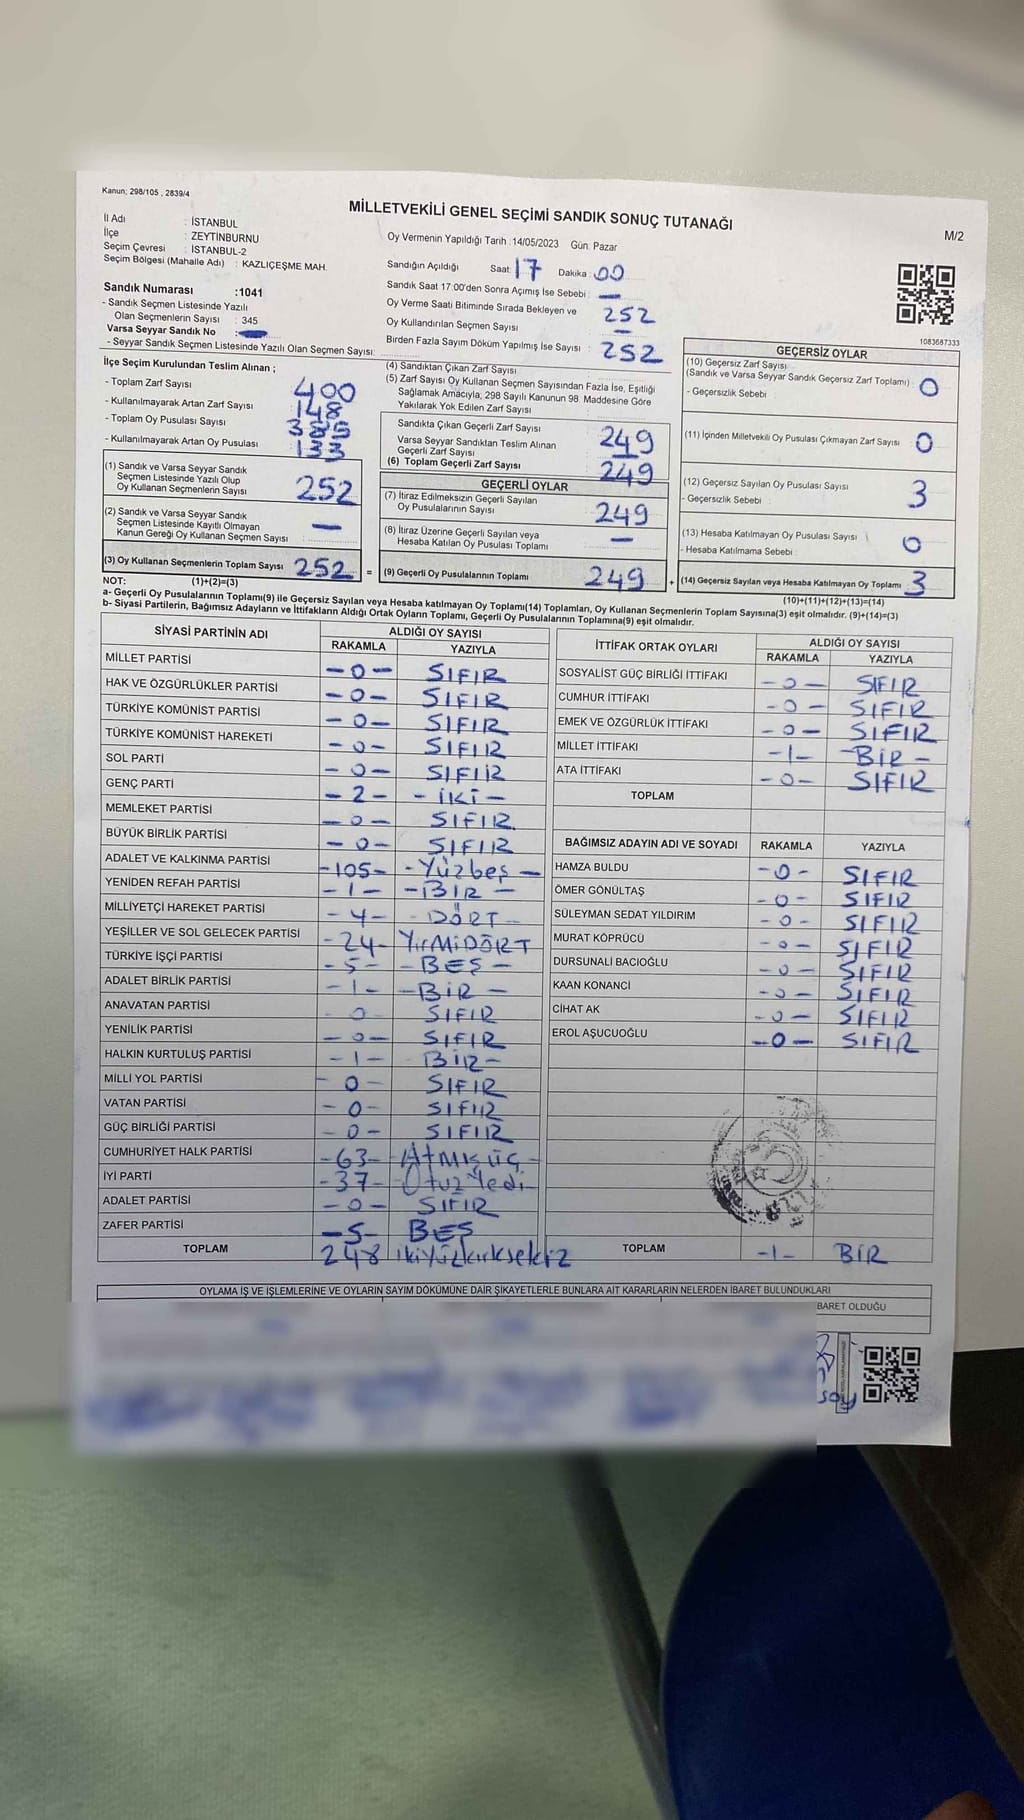 Kanun; 298/105 , 2839/4
MİLLETVEKİLİ GENEL SEÇİMİ SANDIK SONUÇ TUTANAĞI
M/2
İl Adı : İSTANBUL
İlçe : ZEYTİNBURNU
Seçim Çevresi : İSTANBUL-2
Seçim Bölgesi (Mahalle Adı) : KAZLIÇEŞME MAH.
Sandık Numarası :1041
- Sandık Seçmen Listesinde Yazılı
Olan Seçmenlerin Sayısı : 345
Varsa Seyyar Sandık No :
- Seyyar Sandık Seçmen Listesinde Yazılı Olan Seçmen Sayısı:
Oy Vermenin Yapıldığı Tarih :14/05/2023 Gün: Pazar
Sandığın Açıldığı Saat: 17 Dakika : 00
Sandık Saat 17:00'den Sonra Açımış İse Sebebi : —
Oy Verme Saati Bitiminde Sırada Bekleyen ve
Oy Kullandırılan Seçmen Sayısı 252
Birden Fazla Sayım Döküm Yapılmış İse Sayısı : —
1083687333
İlçe Seçim Kurulundan Teslim Alınan ;
- Toplam Zarf Sayısı 400
- Kullanılmayarak Artan Zarf Sayısı 148
- Toplam Oy Pusulası Sayısı 385
- Kullanılmayarak Artan Oy Pusulası 133
(1) Sandık ve Varsa Seyyar Sandık
Seçmen Listesinde Yazılı Olup
Oy Kullanan Seçmenlerin Sayısı 252
(2) Sandık ve Varsa Seyyar Sandık
Seçmen Listesinde Kayıtlı Olmayan
Kanun Gereği Oy Kullanan Seçmen Sayısı : —
(3) Oy Kullanan Seçmenlerin Toplam Sayısı 252 =
(4) Sandıktan Çıkan Zarf Sayısı 252
(5) Zarf Sayısı Oy Kullanan Seçmen Sayısından Fazla İse, Eşitliği
Sağlamak Amacıyla; 298 Sayılı Kanunun 98. Maddesine Göre
Yakılarak Yok Edilen Zarf Sayısı
Sandıkta Çıkan Geçerli Zarf Sayısı 249
Varsa Seyyar Sandıktan Teslim Alınan
Geçerli Zarf Sayısı —
(6) Toplam Geçerli Zarf Sayısı 249
GEÇERLİ OYLAR
(7) İtiraz Edilmeksizin Geçerli Sayılan
Oy Pusulalarının Sayısı 249
(8) İtiraz Üzerine Geçerli Sayılan veya
Hesaba Katılan Oy Pusulası Toplamı —
(9) Geçerli Oy Pusulalarının Toplamı 249 +
GEÇERSİZ OYLAR
(10) Geçersiz Zarf Sayısı
(Sandık ve Varsa Seyyar Sandık Geçersiz Zarf Toplamı) : 0
- Geçersizlik Sebebi :
(11) İçinden Milletvekili Oy Pusulası Çıkmayan Zarf Sayısı 0
(12) Geçersiz Sayılan Oy Pusulası Sayısı 3
- Geçersizlik Sebebi :
(13) Hesaba Katılmayan Oy Pusulası Sayısı : 0
- Hesaba Katılmama Sebebi :
(14) Geçersiz Sayılan veya Hesaba Katılmayan Oy Toplamı 3
NOT: (1)+(2)=(3)
(10)+(11)+(12)+(13)=(14)
a- Geçerli Oy Pusulalarının Toplamı(9) ile Geçersiz Sayılan veya Hesaba katılmayan Oy Toplamı(14) Toplamları, Oy Kullanan Seçmenlerin Toplam Sayısına(3) eşit olmalıdır. (9)+(14)=(3)
b- Siyasi Partilerin, Bağımsız Adayların ve İttifakların Aldığı Ortak Oyların Toplamı, Geçerli Oy Pusulalarının Toplamına(9) eşit olmalıdır.
SİYASİ PARTİNİN ADI
ALDIĞI OY SAYISI
RAKAMLA YAZIYLA
MİLLET PARTİSİ -0- SIFIR
HAK VE ÖZGÜRLÜKLER PARTİSİ -0- SIFIR
TÜRKİYE KOMÜNİST PARTİSİ -0- SIFIR
TÜRKİYE KOMÜNİST HAREKETİ -0- SIFIR
SOL PARTİ -0- SIFIR
GENÇ PARTİ -2- -İKİ-
MEMLEKET PARTİSİ -0- SIFIR
BÜYÜK BİRLİK PARTİSİ -0- SIFIR
ADALET VE KALKINMA PARTİSİ -105- -Yüzbeş-
YENİDEN REFAH PARTİSİ -1- -BİR-
MİLLİYETÇİ HAREKET PARTİSİ -4- -DÖRT-
YEŞİLLER VE SOL GELECEK PARTİSİ -24- YirMİDÖRT
TÜRKİYE İŞÇİ PARTİSİ -5- -BEŞ-
ADALET BİRLİK PARTİSİ -1- -BİR-
ANAVATAN PARTİSİ -0- SIFIR
YENİLİK PARTİSİ -0- SIFIR
HALKIN KURTULUŞ PARTİSİ -1- BİR-
MİLLİ YOL PARTİSİ -0- SIFIR
VATAN PARTİSİ -0- SIFIR
GÜÇ BİRLİĞİ PARTİSİ -0- SIFIR
CUMHURİYET HALK PARTİSİ -63- -Atmışüç-
İYİ PARTİ -37- -Otuz Yedi-
ADALET PARTİSİ -0- SIFIR
ZAFER PARTİSİ -5- BEŞ
TOPLAM 248 ikiyüzkırksekiz
İTTİFAK ORTAK OYLARI
ALDIĞI OY SAYISI
RAKAMLA YAZIYLA
SOSYALİST GÜÇ BİRLİĞİ İTTİFAKI -0- SIFIR
CUMHUR İTTİFAKI -0- SIFIR
EMEK VE ÖZGÜRLÜK İTTİFAKI -0- SIFIR
MİLLET İTTİFAKI -1- -BİR-
ATA İTTİFAKI -0- SIFIR
TOPLAM
BAĞIMSIZ ADAYIN ADI VE SOYADI RAKAMLA YAZIYLA
HAMZA BULDU -0- SIFIR
ÖMER GÖNÜLTAŞ -0- SIFIR
SÜLEYMAN SEDAT YILDIRIM -0- SIFIR
MURAT KÖPRÜCÜ -0- SIFIR
DURSUNALİ BACIOĞLU -0- SIFIR
KAAN KONANCİ -0- SIFIR
CİHAT AK -0- SIFIR
EROL AŞUCUOĞLU -0- SIFIR
TOPLAM -1- BİR
OYLAMA İŞ VE İŞLEMLERİNE VE OYLARIN SAYIM DÖKÜMÜNE DAİR ŞİKAYETLERLE BUNLARA AİT KARARLARIN NELERDEN İBARET BULUNDUKLARI
BARET OLDUĞU
soy